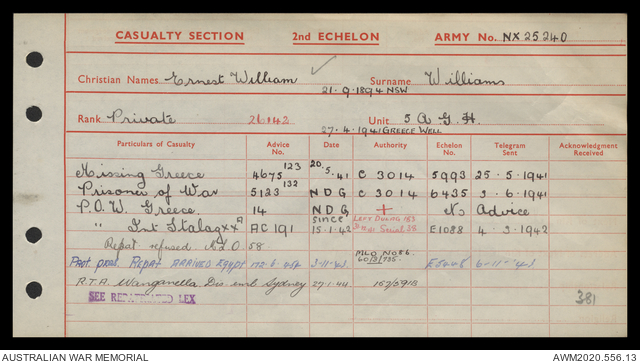 CASUALTY SECTION 2nd ECHELON ARMY No. NX25240
Christian Names Ernest William Surname Williams
21.9.1894 NSW
Rank Private 26142 Unit 5 A.G.H.
27.4.1941 GREECE WELL
Particulars of Casualty Advice No. Date Authority Echelon No. Telegram Sent Acknowledgment Received
Missing Greece 4675 123 20.5.41 C 3014 5993 25.5.1941
Prisoner of War 5123 132 NDG C 3014 6435 3.6.1941
P.O.W. Greece. 14 NDG + No Advice
" Int Stalag XX A AC 191 since 15.1.42 Serial 28 E1088 4.3.1942
Repat refused. 58.
Prot. pers. Repat ARRIVED EGYPT 3-11-43 MLO NO86. 60/3/735. 6-11-43
R.T.A. Wanganella Dis. emb Sydney 27.1.44
SEE REPATRIATED LEX
381
AUSTRALIAN WAR MEMORIAL AWM2020.556.13